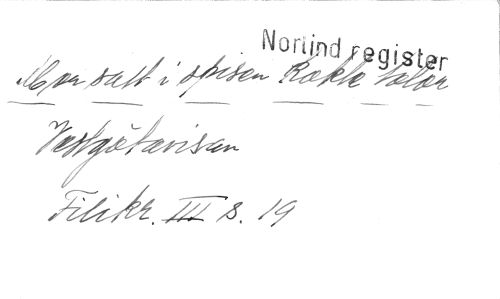 Norlind register
Mor satt i spisen Rokk
Vestgötavisan
Filikr. III s. 19